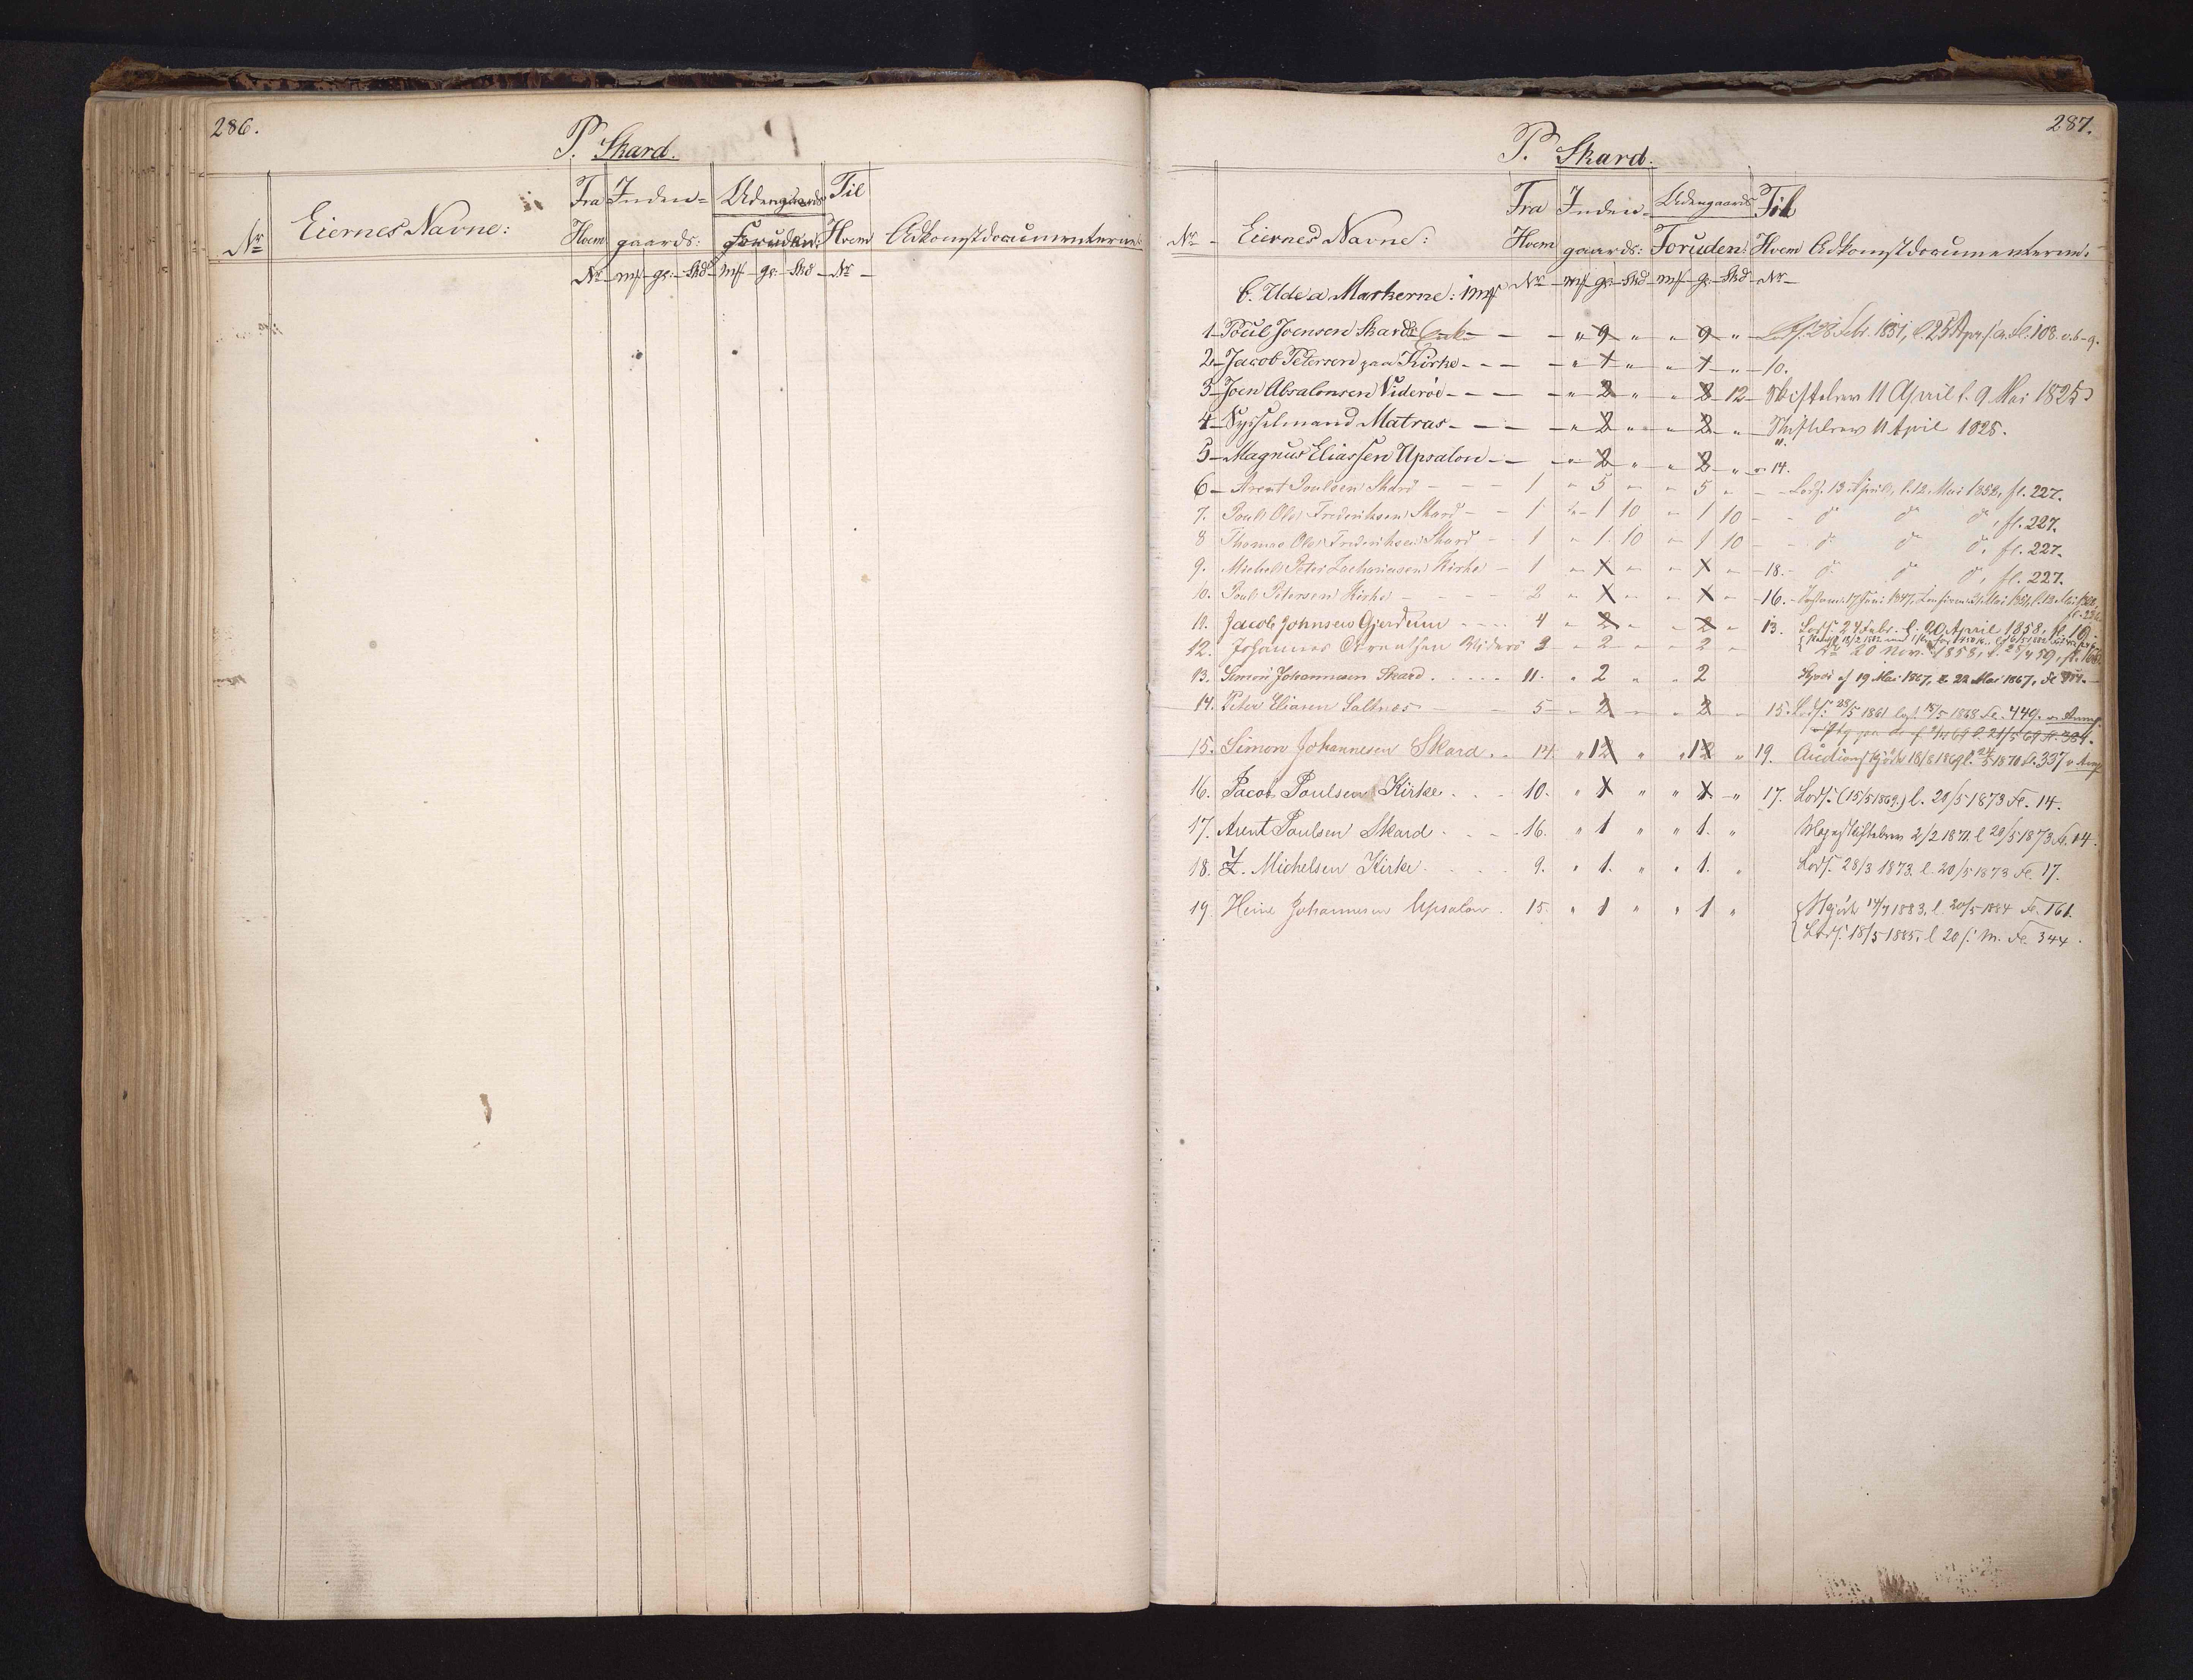 286.
P. Skard.
Nr Eiernes Navne: Fra Hvem Inden= gaards: Udengaards Foruden: Til Hvem Adkomstdocumenterne.
Nr mk gr: Skd mk gr: Skd Nr
287.
P. Skard.
Nr Eiernes Navne: Fra Hvem Inden= gaards: Udengaards Foruden: Til Hvem Adkomstdocumenterne.
b. Ude a Markerne: 1 mk Nr mk gr Skd mk gr Skd Nr
1 Poul Joensen Skard " 9 " " 9 " 28 Febr. 1851, l. 25 Apr. s. a. Fl: 108.
2 Jacob Petersen paa Kirke " 1 " " 1 " 10.
3 Joen Absalonsen Viderøe " 2 " " 2 12 Skiftebrev 11 April l. 9 Mai 1825
4 Sysselmand Matras " 2 " " 2 " Skiftebrev 11 April 1825.
5 Magnus Eliassen Upsalon " 2 " " 2 " 14.
6 Arent Poulsen Skard 1 " 5 " " 5 " Lods. 13 April, l. 12 Mai 1852, fl. 227.
7. Poul Ole Frederiksen Skard 1 " 1 10 " 1 10 do do do, fl. 227.
8 Thomas Ole Frederiksen Skard 1 " 1 10 " 1 10 do do do, fl. 227.
9. Michel Peter Zachariasen Kirke 1 " 1 " " 1 " 18. do do do, fl. 227.
10. Poul Petersen Kirke 2 " 1 " " 1 " 16. 17 Juni 1847, Mai 1851, l. 12 Mai 1852,
11. Jacob Johnsen Gjerdum 4 " 2 " " 2 " 13. Lods. 24 Febr. l. 20 April 1858. fl. 19.
12. Johannes Viderø 3 " 2 " " 2 " 20 Nov. 1858, l. 59, fl. 168
13. Simon Johannesen Skard 11. " 2 " " 2 19 Mai 1867, l. 22 Mai 1867, fl
14. Peter Eliasen Saltnes 5 " 2 " " 2 " 15. Lods: 28/5 1861 lgl. 15/5 1868 Fl. 449.
15. Simon Johannesen Skard 14 " 12 " " 12 " 19. Auctions Skjöde 18/8 1869 l. 24/5 1870 fl. 337
16. Jacob Poulsen Kirke 10. " 1 " " 1 " 17. Lods. (15/5 1869.) l. 20/5 1873 Fl. 14.
17. Arent Poulsen Skard 16. " 1 " " 1. " 2/2 1871. l 20/5 1873. fl. 14.
18. Z. Michelsen Kirke 9. " 1. " " 1. " Lods. 28/3 1873. l. 20/5 1873 Fl. 17.
19. Heine Johannesen Upsalon 15. " 1 " " 1 " 14/7 1883, l. 20/5 1884 Fl. 161.
Lods: 18/5 1885, l 20 s. M. Fl. 344.